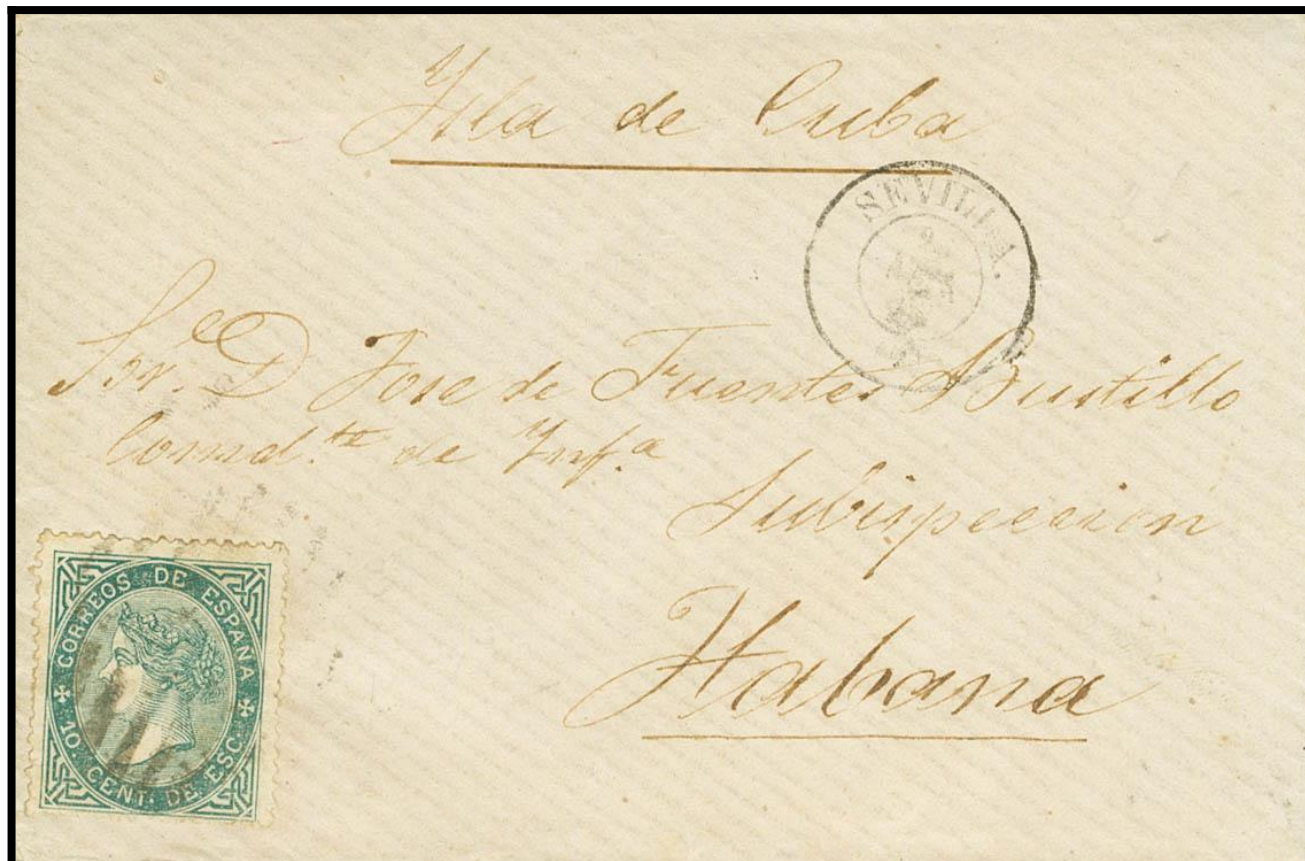 Ysla de Cuba
SEVILLA.
Sor. D Jose de Fuentes Bustillo
Comd.te de Inf.a
Subispeccion
Habana
CORREOS DE ESPAÑA
10. CENT. DE ESC.